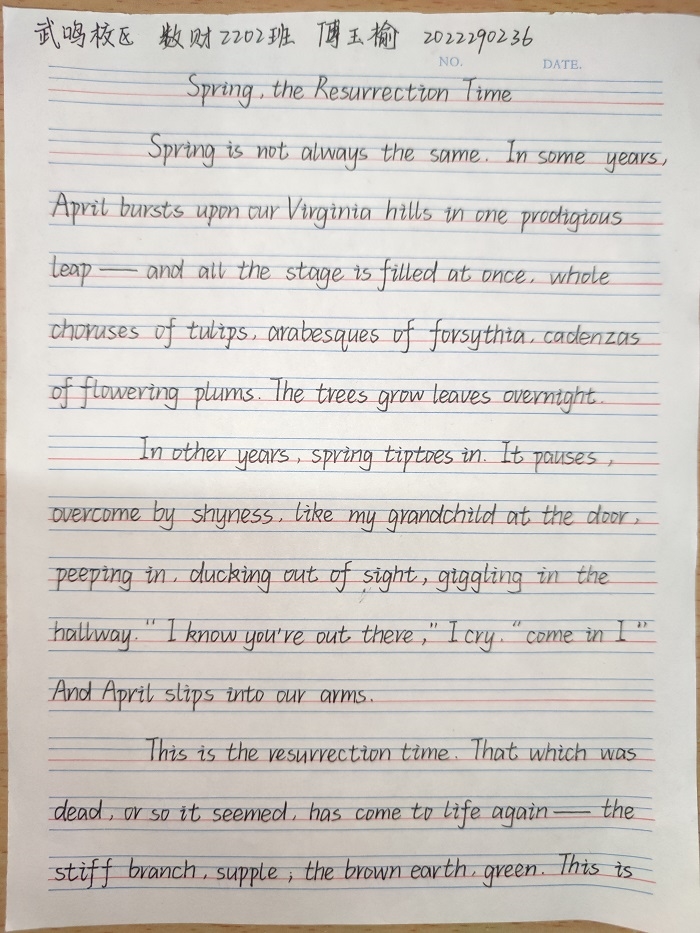 武鸣校区 数财2202班 傅玉榆 2022290236
NO. DATE.
Spring, the Resurrection Time
Spring is not always the same. In some years,
April bursts upon our Virginia hills in one prodigious
leap — and all the stage is filled at once, whole
choruses of tulips, arabesques of forsythia, cadenzas
of flowering plums. The trees grow leaves overnight.
In other years, spring tiptoes in. It pauses,
overcome by shyness, like my grandchild at the door,
peeping in, ducking out of sight, giggling in the
hallway. "I know you're out there," I cry. "come in I"
And April slips into our arms.
This is the resurrection time. That which was
dead, or so it seemed, has come to life again — the
stiff branch, supple; the brown earth, green. This is